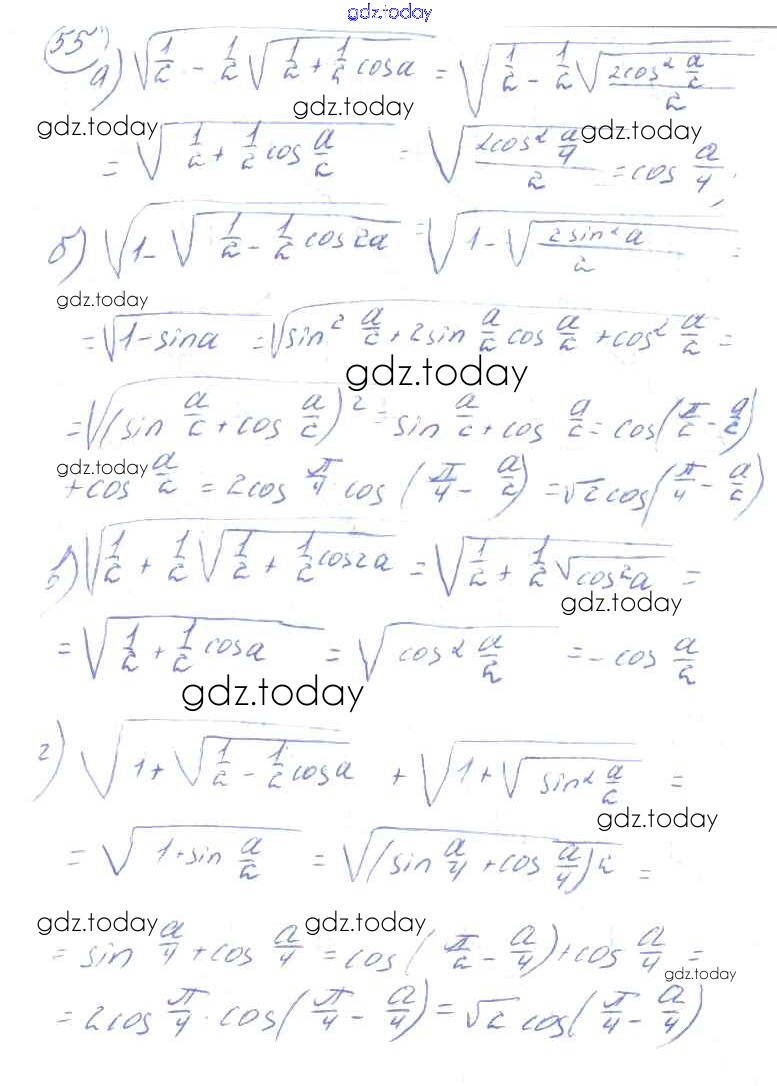 gdz.today
55
а) √(1/2 - 1/2 √(1/2 + 1/2 cos a)) = √(1/2 - 1/2 √(2cos² a/2 / 2))
gdz.today gdz.today gdz.today
= √(1/2 + 1/2 cos a/2) = √(2cos² a/4 / 2) = cos a/4;
б) √(1 - √(1/2 - 1/2 cos 2a)) = √(1 - √(2sin² a / 2)) =
gdz.today
= √(1 - sin a) = √(sin² a/2 + 2sin a/2 cos a/2 + cos² a/2) =
gdz.today
= √((sin a/2 + cos a/2)²) = sin a/2 + cos a/2 = cos(π/2 - a/2)
gdz.today
+ cos a/2 = 2cos π/4 · cos(π/4 - a/2) = √2 cos(π/4 - a/2)
√(1/2 + 1/2 √(1/2 + 1/2 cos 2a)) = √(1/2 + 1/2 √(cos² a)) =
gdz.today
= √(1/2 + 1/2 cos a) = √(cos² a/2) = - cos a/2
gdz.today
г) √(1 + √(1/2 - 1/2 cos a)) + √(1 + √(sin² a/2)) =
gdz.today
= √(1 + sin a/2) = √((sin a/4 + cos a/4)²) =
gdz.today gdz.today
= sin a/4 + cos a/4 = cos(π/2 - a/4) + cos a/4 =
gdz.today
= 2cos π/4 · cos(π/4 - a/4) = √2 cos(π/4 - a/4)